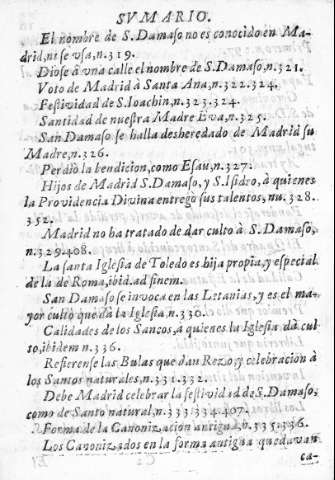 SVMARIO.
El nombre de S. Damaso no es conocido en Ma-
drid, ni se vsa, n.319.
Diose à vna calle el nombre de S. Damaso, n.321.
Voto de Madrid à Santa Ana, n.322.324.
Festividad de S. Ioachin, n.323.324.
Santidad de nuestra Madre Eva, n.325.
San Damaso se halla desheredado de Madrid su
Madre, n.326.
Perdiò la bendicion, como Esau, n.327.
Hijos de Madrid S. Damaso, y S. Isidro, à quienes
la Providencia Divina entregò sus talentos, nu. 328.
352.
Madrid no ha tratado de dar culto à S. Damaso,
n.329.408.
La santa Iglesia de Toledo es hija propia, y especial
de la de Roma, ibid. ad finem.
San Damaso se invoca en las Letanias, y es el ma-
yor culto que dà la Iglesia, n.330.
Calidades de los Santos, à quienes la Iglesia dà cul
to, ibidem n.336.
Refierense las Bulas que dan Rezo, y celebracion à
los Santos naturales, n.331.332.
Debe Madrid celebrar la festividad de S. Damaso,
como de Santo natural, n.333.334.407.
Forma de la Canonizacion antigua, n.335.336.
Los Canonizados en la forma antigua quedavan
ca-